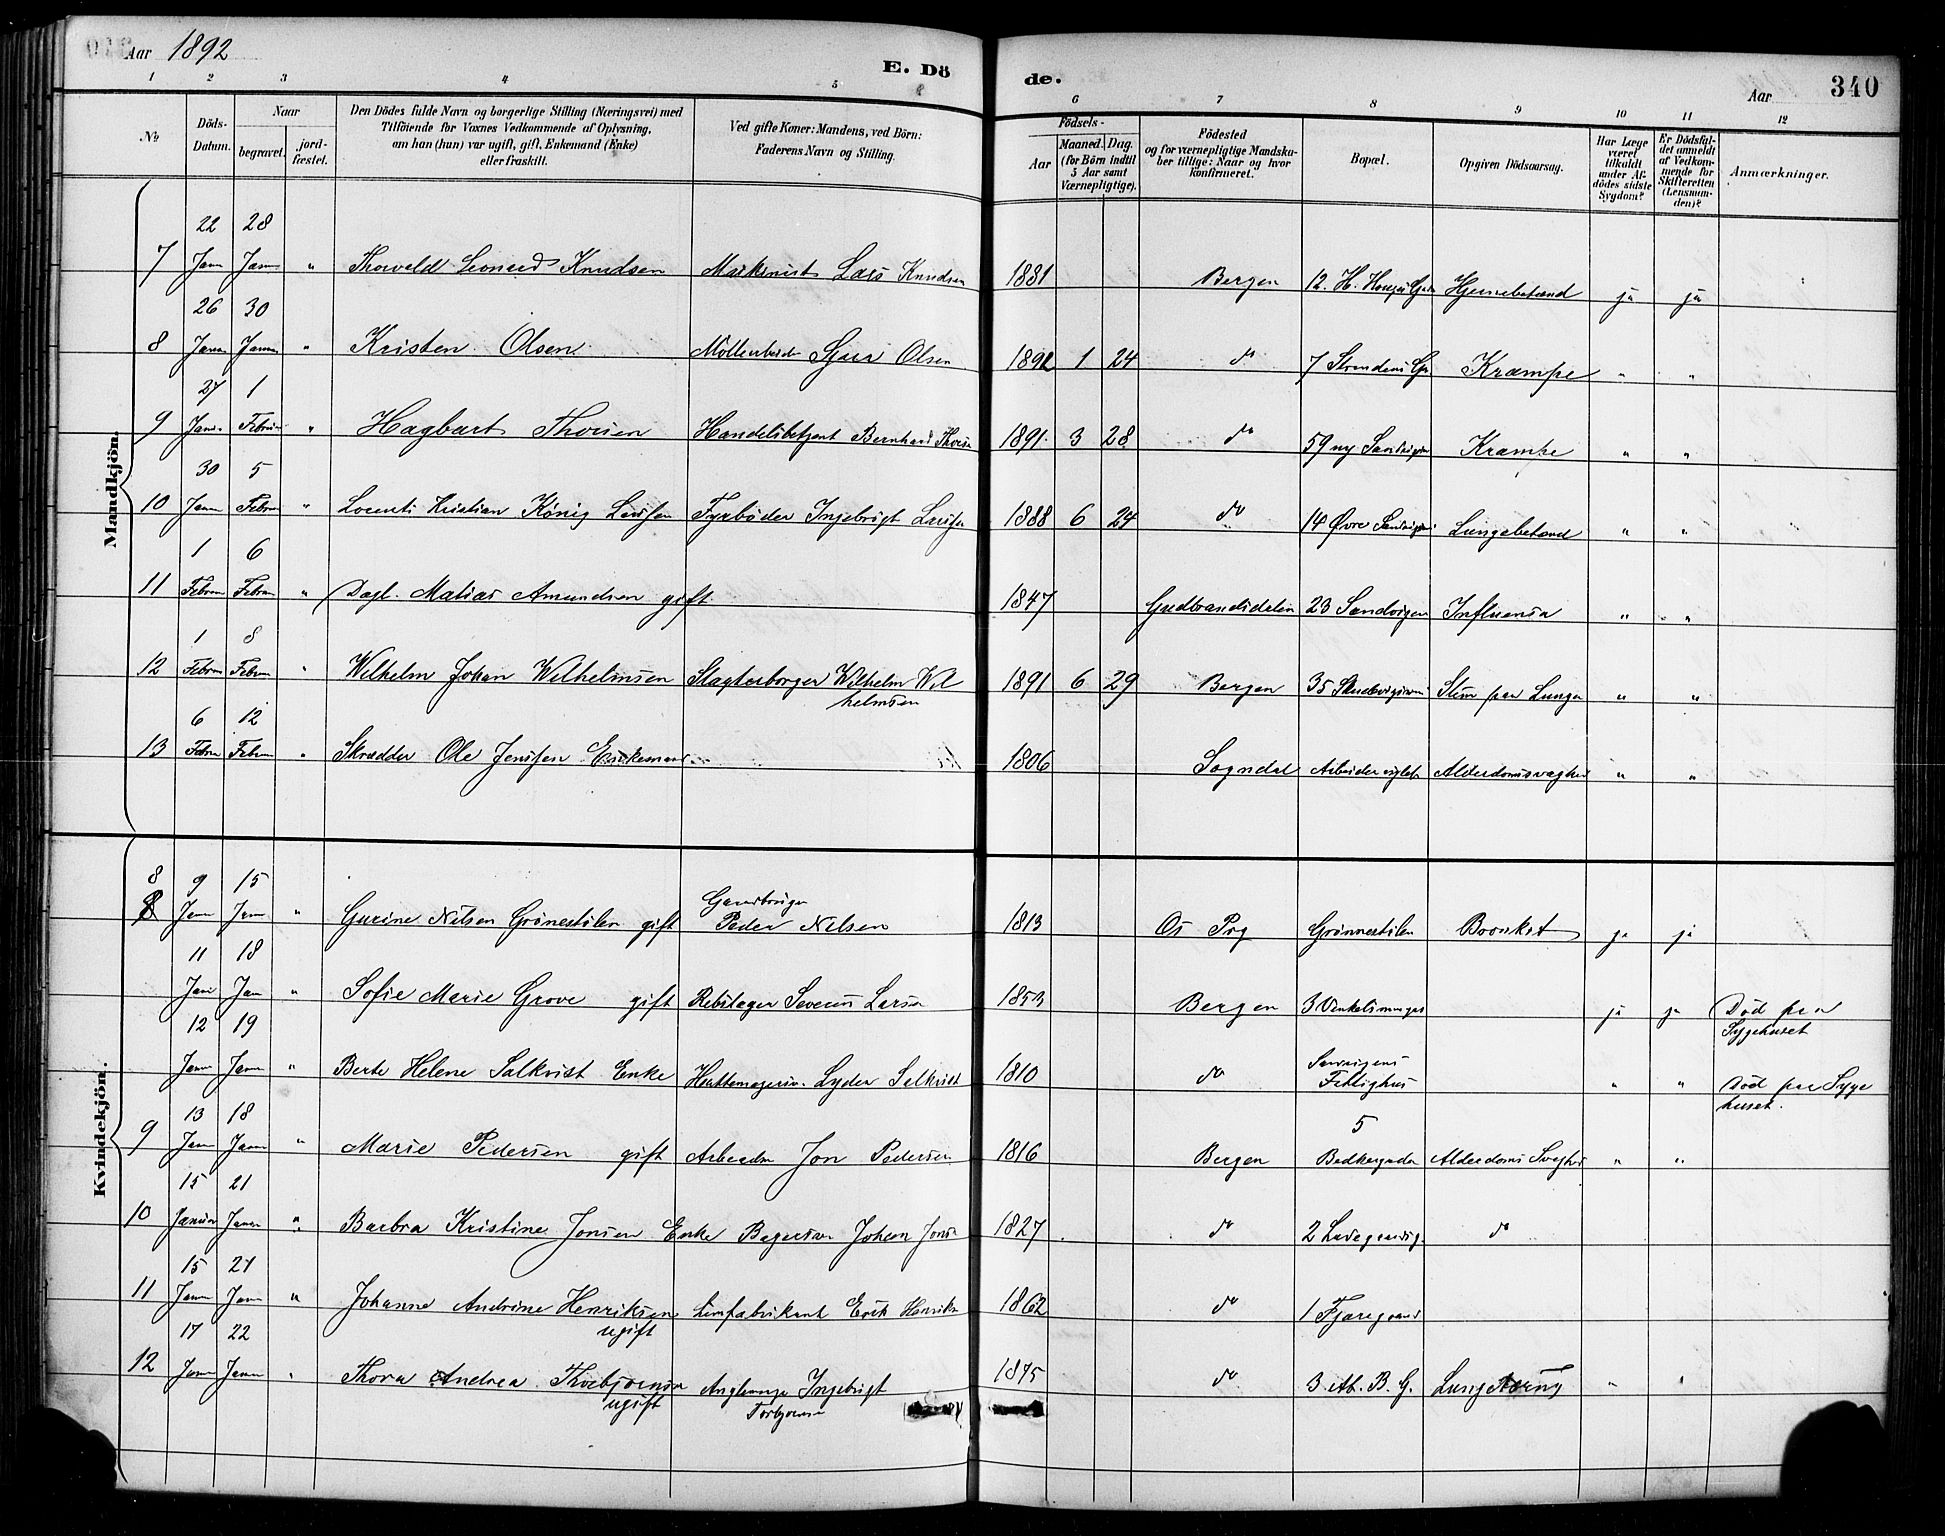 Aar 1892
E. Dö de.
Aar 340
1 2 3 4 5 6 7 8 9 10 11 12
No
Döds-Datum.
Naar
begravet.
jord-fæstet.
Den Dödes fulde Navn og borgerlige Stilling (Næringsvei) med
Tilföiende for Voxnes Vedkommende af Oplysning,
om han (hun) var ugift, gift, Enkemand (Enke)
eller fraskilt.
Ved gifte Koner: Mandens, ved Börn:
Faderens Navn og Stilling.
Födsels-
Aar
Maaned. Dag.
(for Börn indtil
5 Aar samt
Værnepligtige).
Födested
og for værnepligtige Mandskaber
tillige: Naar og hvor
konfirmeret.
Bopæl.
Opgiven Dödsaarsag.
Har Læge
været
tilkaldt
under Afdödes
sidste
Sygdom?
Er Dödsfaldet
anmeldt
af Vedkommende
for
Skifteretten
(Lensmanden)?
Anmærkninger.
Mandkjön.
22 28
7 Janu Janu " Thorvald Leonard Knudsen Maskinist Lars Knudsen 1881 Bergen 12. H. Gade Hjernebetænd ja ja
26 30
8 Janu Janu " Kristen Olsen Olsen 1892 1 24 do 7 Krampe " "
27 1
9 Janu Febru " Hagbart Thorsen Handelsbetjent Bernhard Thorsen 1891 3 28 do 59 ny Sandvigs Krampe " "
30 5
10 Janu Febru " Lorents Kristian König Larsen Fyrböder Ingebrigt Larsen 1888 6 24 do 14 Øvre Sandvigs Lungebetænd " "
1 6
11 Febru Febru " Dagl. Matias Amundsen gift 1847 Gudbrandsdalen 23 Sandvigen Influensa " "
1 8
12 Febru Febru " Wilhelm Johan Wilhelmsen Slagterborger Wilhelm Wilhelmsen 1891 6 29 Bergen 35 Slim paa Lunge " "
6 12
13 Febru Febru " Skrædder Ole Jensen Enkemand 1806 Sogndal Alderdomsvaghed " "
Kvindekjön.
8 9 15
Janu Janu " Gurine Nilsen Grönestölen gift Gaardbruger Peder Nilsen 1813 Os Prg Grönnestölen Bronkit ja ja
11 18
Jan Jan " Sofie Marie Grove gift Rebslager Severin Larsen 1853 Bergen 3 ja ja Död paa Sygehuset
12 19
Janu Janu " Berte Helene Salkvist Enke Hattemagersv. Lyder Salkvist 1810 do Sandvigens Fattighus " " Död paa Sygehuset.
13 18
9 Janu Janu " Marie Pedersen gift Arbeider Jon Pedersen 1816 Bergen 5 Alderdoms Svaghed " "
15 21
10 Januar Januar " Barbra Kristine Jonsen Enke Bagersv. Johan Jonsen 1827 do 2 Ladegaardsg. do
15 21
11 Janu Janu " Johanne Andrine Henriksen ugift Limfabrikant Erik Henriksen 1862 do 1 Fjæregaard
17 22
12 Janu Janu " Thora Andrea Thorbjörnsen ugift Ingebrigt Torbjörnsen 1875 do 3 B. G. Lunget "